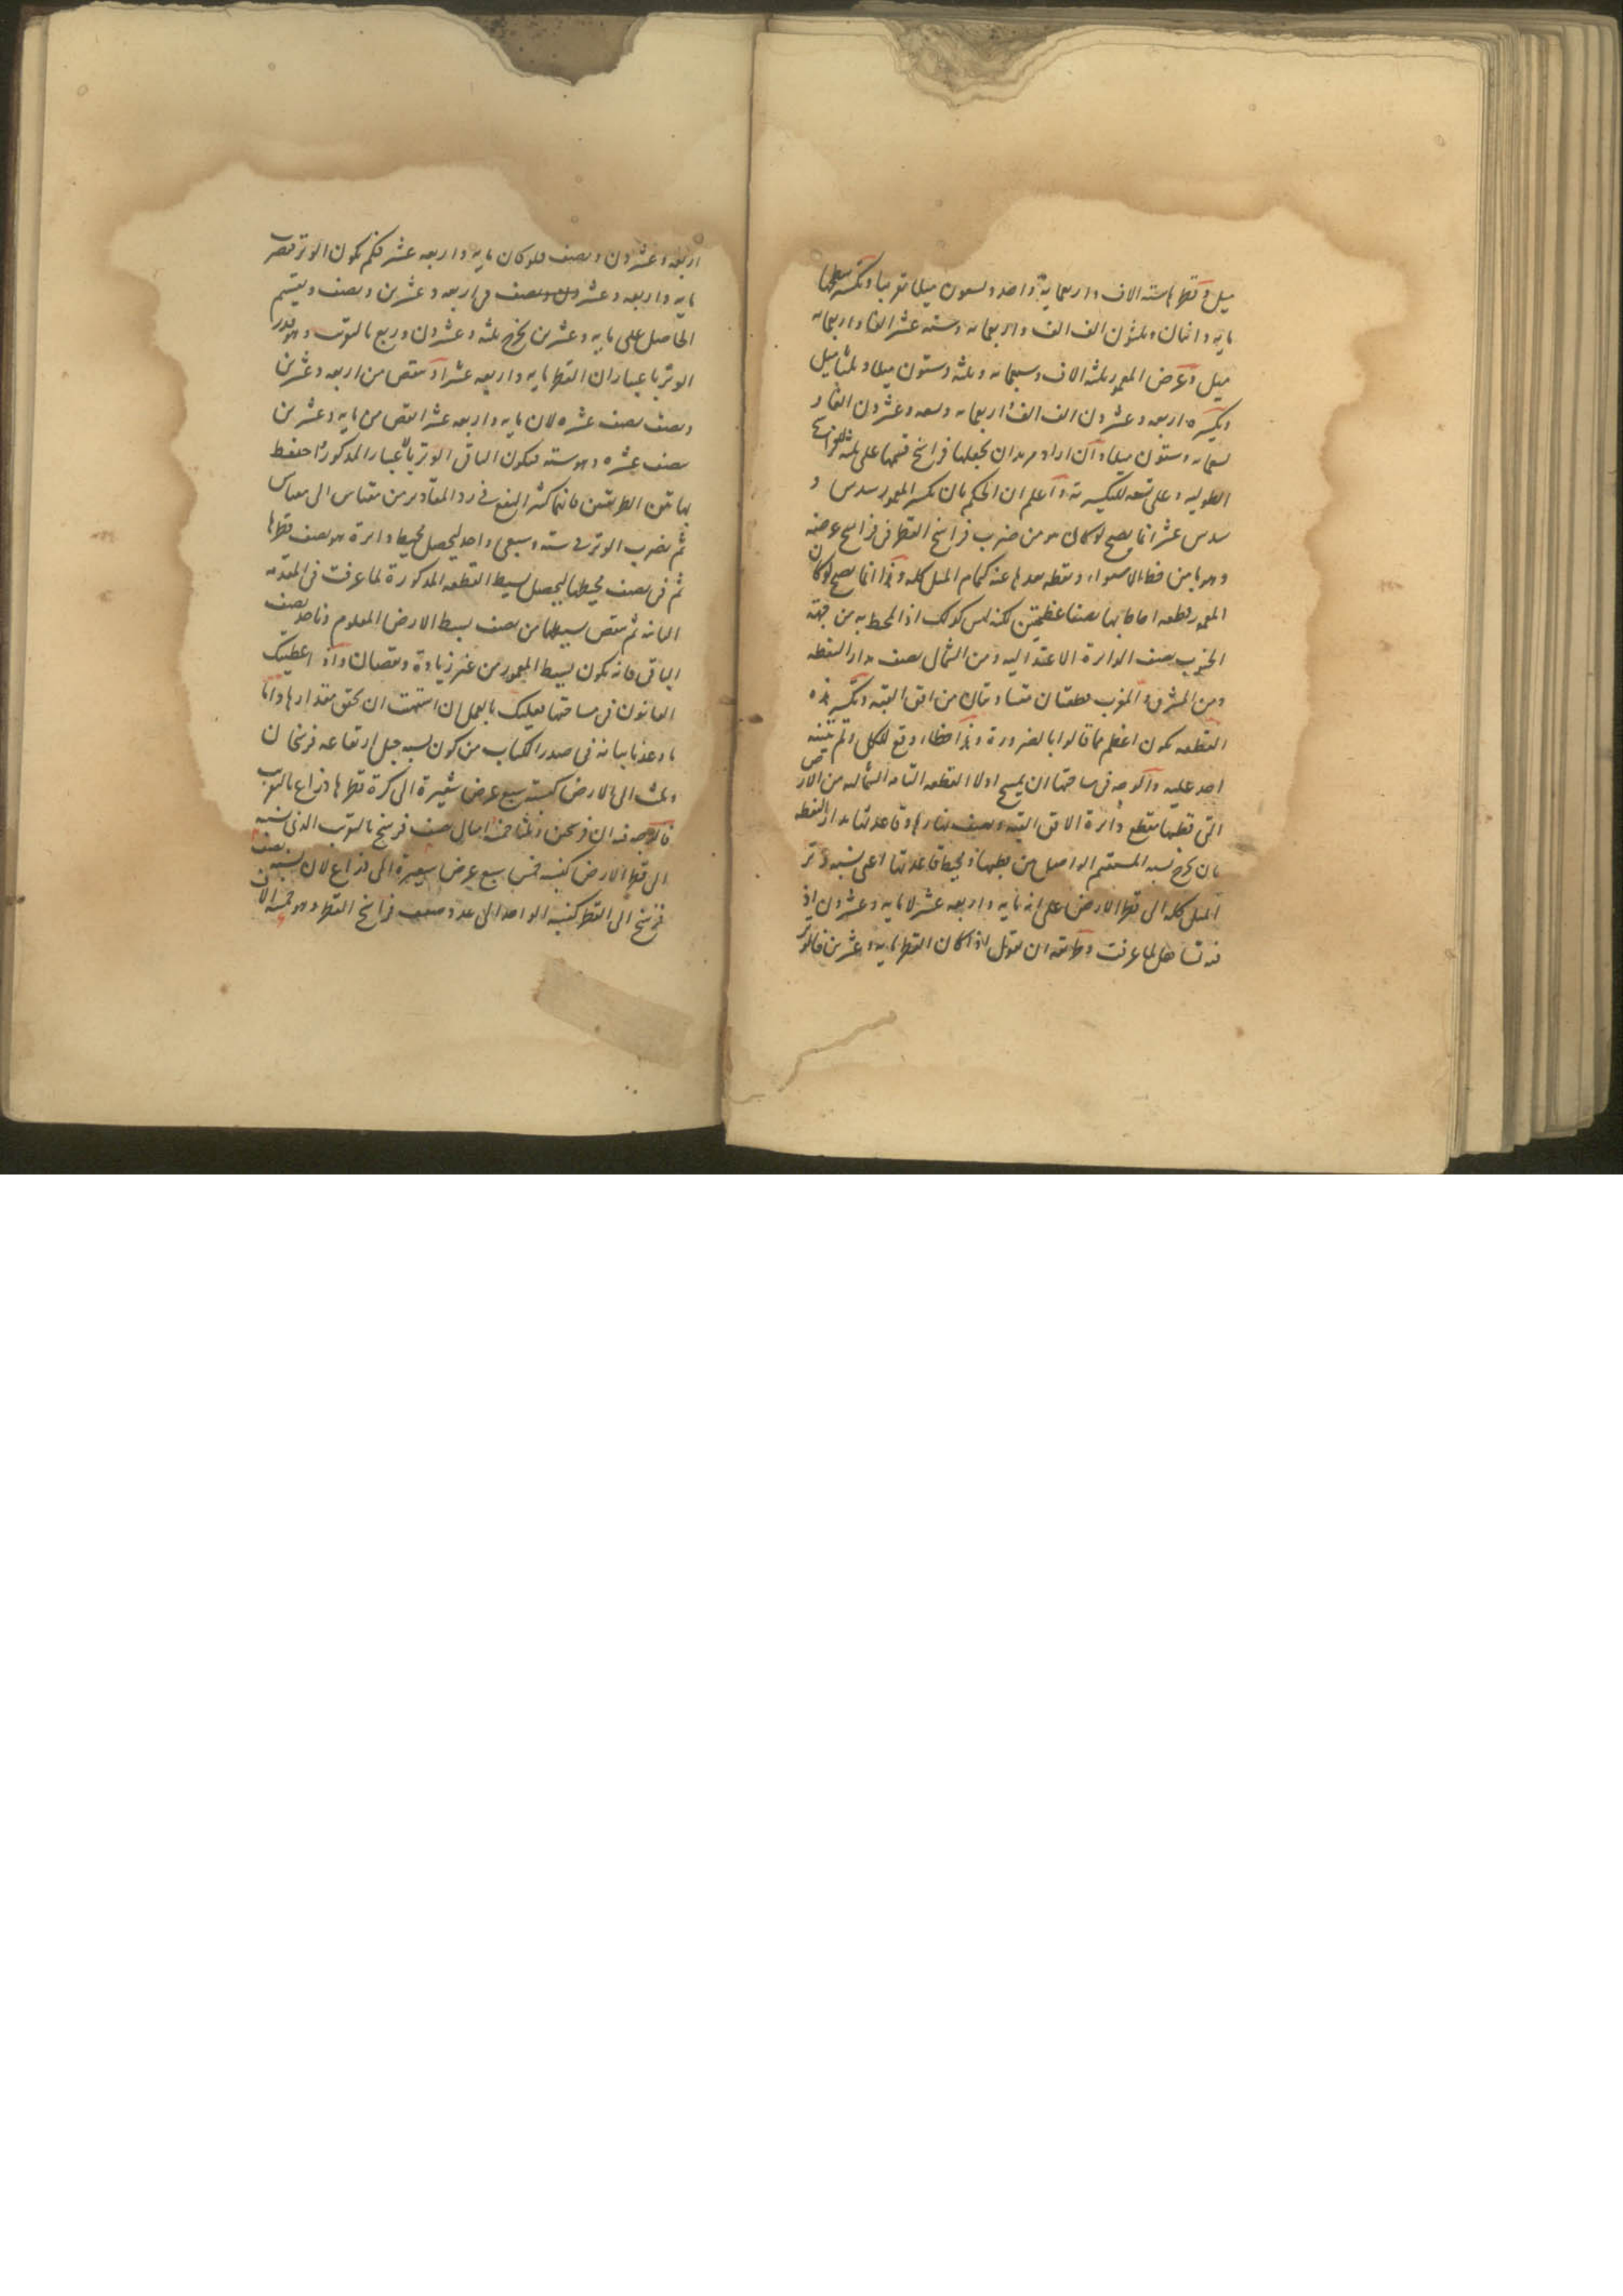 ميل وقطرها ستة الاف واربعمايه واحد وتسعون ميلا تقريبا وتكسير سطحها
مايه واثنان وثلثون الف الف واربعمايه وستة عشر الفا واربعمايه
ميل وعرض المعمور ثلثة الاف وسبعمايه وثلثة وستون ميلا وثلثا ميل
وتكسيره اربعه وعشرون الف الف واربعمايه وسعه وعشرون الفا و
وستون ميلا وان اراد مريد ان يجعلها فراسخ قسمها على ثلثه
الطوليه وعلى تسعه للتكسيريه واعلم ان الحكم بان تكسير المعمور سدس و
سدس عشر انما يصح لو كان هو من ضرب فراسخ القطر في فراسخ عرضه
وهو ما بين خط الاستواء ونقطه بعدها عنه كتمام الميل كله وهذا انما يصح لو كان
المعمور قطعه احاط بها نصفا عظيمتين لكنه ليس كذلك اذ المحيط به من جهة
الجنوب نصف الدائرة الاعتداليه ومن الشمال نصف مدار النقطه
ومن المشرق والمغرب قطعتان متساويتان من افق القبه وتكسير هذه
القطعه يكون اعظم مما قالوا بالضرورة وهذا خطاء وقع للكل ولم يتنبه
احد عليه والوجه في مساحتها ان يمسح اولا القطعه التامه الشماليه من الارض
التي قطبها تقطع دائرة الافق القبه ونصف نهارها وقاعدتها مدار النقطه
بان يخرج نسبه المستقيم الواصل بين قطبها ومحيط قاعدتها اعنى نسبه وتر
الميل كله الى قطر الارض على انه مايه واربعه عشر لا مايه وعشرون اذ
فيه تساهل لما عرفت وطريقه ان نقول اذا كان القطر مايه وعشرين فالوتر
اربعه وعشرون ونصف فلو كان مايه واربعه عشر فكم يكون الوتر فنضرب
مايه واربعه وعشرون ونصف في اربعه وعشرين ونصف ونقسم
الحاصل على مايه وعشرين يخرج ثلثه وعشرون وربع بالتقريب وهو قدر
الوتر باعتبار ان القطر مايه واربعه عشر او ننقص من اربعه وعشرين
ونصف نصف عشره لان مايه واربعه عشر انقص من مايه وعشرين
بنصف عشره وهو ستة فيكون الباقي الوتر بالاعتبار المذكور احتفظ
بهاتين الطريقتين فانهما كثير النفع في رد المقادير من مقياس الى مقياس
ثم نضرب الوتر في ستة وسبعى واحد ليحصل محيط دائرة هو نصف قطرها
ثم في نصف محيطها ليحصل بسيط القطعه المذكورة لما عرفت في المقدمه
الثانيه ثم ننقص بسيطها من نصف بسيط الارض المعلوم وناخذ نصف
الباقي فانه يكون بسيط المعمور من غير زيادة ونقصان واذ اعطيتك
القانون في مساحتها فعليك بالعمل ان اشتهيت ان تحقق مقدارها واما
ما وعدنا بيانه في صدر الكتاب من كون نسبه جبل ارتفاعه فرسخان
وثلث الى الارض كنسبة سبع عرض شعيرة الى كرة قطرها ذراع بالتقريب
فالوجه فيه ان فرسخين وثلثا خمسة امثال نصف فرسخ بالتقريب الذي نسبته
الى قطر الارض كنسبه خمس سبع عرض شعيرة الى ذراع لان نسبه نصف
فرسخ الى القطر كنسبه الواحد الى عدد ضعف فراسخ القطر وهو خمسة الاف